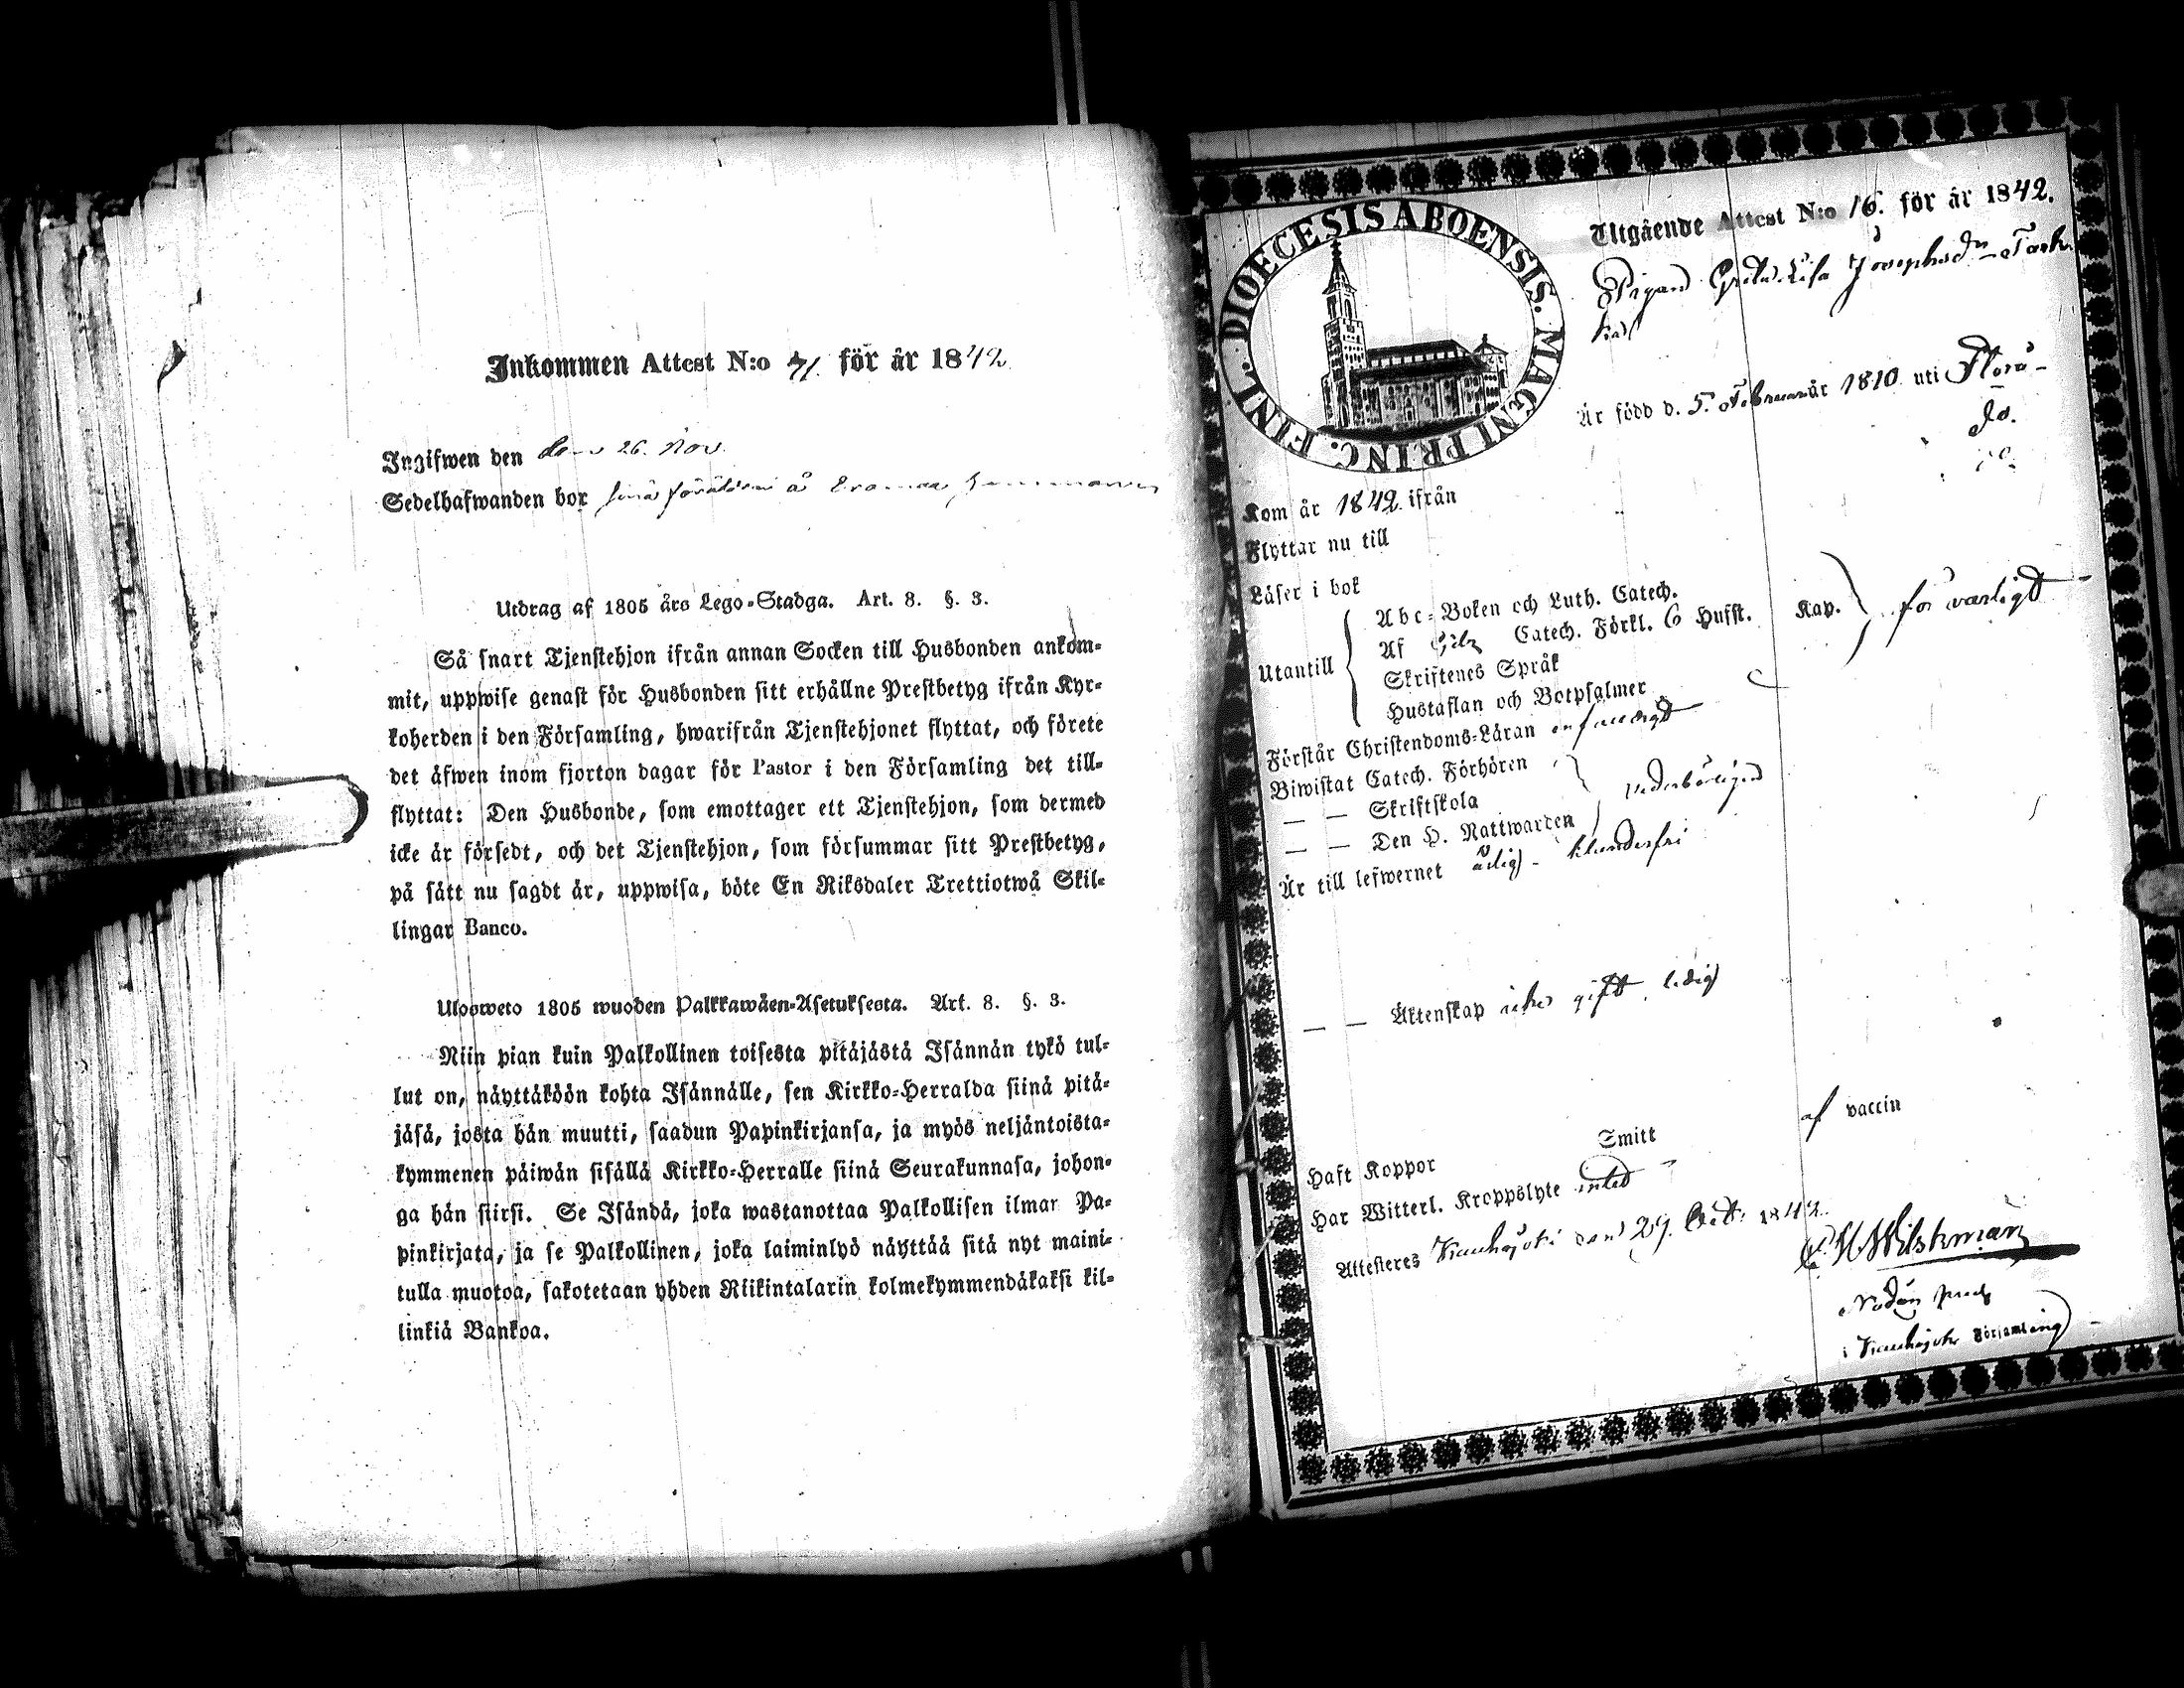 Inkommen Attest N:o 41. för år 1842.
Ingifwen den den 26. Nov.
Sedelhafwanden bor sina föräldrar å
Utdrag af 1805 års Lego-Stadga. Art. 8. §. 3.
Så snart Tjenstehjon ifrån annan Socken till Husbonden ankom-
mit, uppwise genast för Husbonden sitt erhållne Prestbetyg ifrån Kyr-
koherden i den Församling, hwarifrån Tjenstehjonet flyttat, och förete
det äfwen inom fjorton dagar för Pastor i den Församling det till-
flyttat: Den Husbonde, som emottager ett Tjenstehjon, som dermed
icke är försedt, och det Tjenstehjon, som försummar sitt Prestbetyg,
på sätt nu sagdt är, uppwisa, böte En Riksdaler Trettiotwå Skil-
lingar Banco.
Ulosweto 1805 wuoden Palkkawäen-Asetuksesta. Art. 8. §. 3.
Niin pian kuin Palkollinen toisesta pitäjästä Isännän tykö tul-
lut on, näyttäköön kohta Isännälle, sen Kirkko-Herralda siinä pitä-
jäsä, josta hän muutti, saadun Papinkirjansa, ja myös neljäntoista-
kymmenen päiwän sisällä Kirkko-Herralle siinä Seurakunnasa, johon-
ga hän siirsi. Se Isändä, joka wastanottaa Palkollisen ilman Pa-
pinkirjata, ja se Palkollinen, joka laiminlyö näyttää sitä nyt maini-
tulla muotoa, sakotetaan yhden Riikintalarin kolmekymmendäkaksi kil-
linkiä Bankoa.
DIOECESIS ABOENSIS. MAGNI PRINC. FINL.
Utgående Attest N:o 16. för år 1842.
Pigan Greta Lisa Josephsdr
Är född d. 5. Februarii år 1810. uti
Kom år 1842. ifrån do.
Flyttar nu till
Läser i bok
Utantill
Abc-Boken och Luth. Catech.
Af Catech. Förkl. 6 Hufst. Kap. försvarligt
Skriftenes Språk
Hustaflan och Botpsalmer
Förstår Christendoms-Läran enfaldigt
Biwistat Catech. Förhören
— — Skriftskola vederbörligen
— — Den H. Nattwarden
Är till lefwernet ärlig - klanderfri
— — Äktenskap icke gift, ledig
Haft Koppor Smitt af vaccin
Har Witterl. Kroppslyte intet
Attesteres Kauhajoki den 29. Oct. 1842.
Wilskman
i Kauhajoki Församling